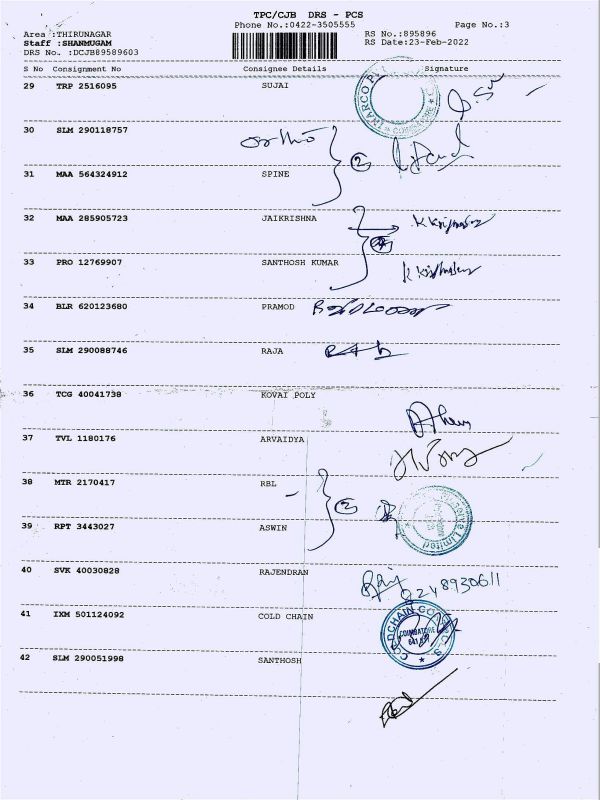 TPC/CJB DRS - PCS
Phone No.:0422-3505555 Page No.:3
Area :THIRUNAGAR RS No.:895896
Staff :SHANMUGAM RS Date:23-Feb-2022
DRS No. :DCJB89589603
S No Consignment No Consignee Details Signature
29 TRP 2516095 SUJAI
30 SLM 290118757 ortho
31 MAA 564324912 SPINE
32 MAA 285905723 JAIKRISHNA
33 PRO 12769907 SANTHOSH KUMAR
34 BLR 620123680 PRAMOD
35 SLM 290088746 RAJA
36 TCG 40041738 KOVAI POLY
37 TVL 1180176 ARVAIDYA
38 MTR 2170417 RBL
39 RPT 3443027 ASWIN
Limited
40 SVK 40030828 RAJENDRAN
41 IXM 501124092 COLD CHAIN
COIMBATORE
42 SLM 290051998 SANTHOSH